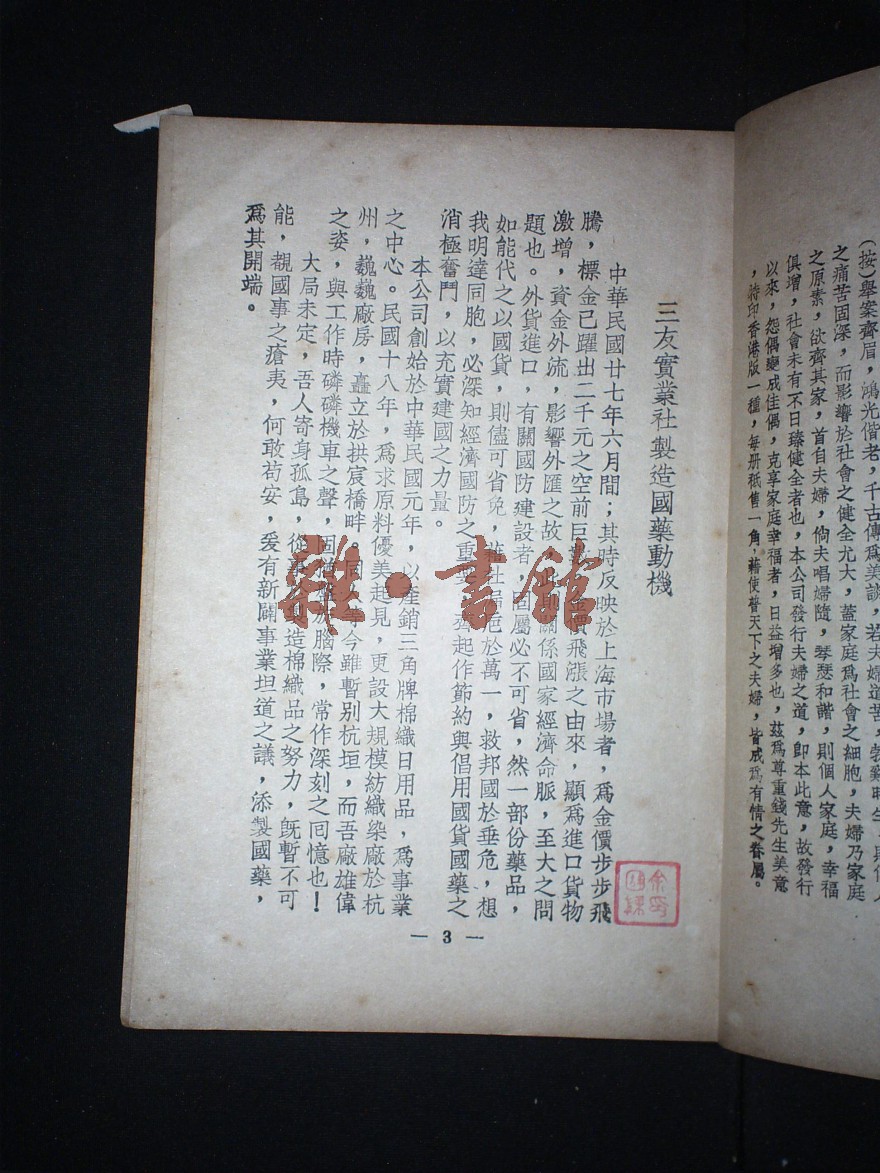 (按)舉案齊眉,鴻光偕老,千古傳爲美談,若夫婦道苦,勃谿時生,則個人
之痛苦固深,而影響於社會之健全尤大,蓋家庭爲社會之細胞,夫婦乃家庭
之原素,欲齊其家,首自夫婦,倘夫唱婦隨,琴瑟和諧,則個人家庭,幸福
俱增,社會未有不日臻健全者也,本公司發行夫婦之道,卽本此意,故發行
以來,怨偶變成佳偶,克享家庭幸福者,日益增多也,茲爲尊重錢先生美意
,特印香港版一種,每册祇售一角,藉使普天下之夫婦,皆成爲有情之眷屬。
三友實業社製造國藥動機
中華民國廿七年六月間;其時反映於上海市場者,爲金價步步飛
騰,標金已躍出二千元之空前巨 金價飛漲之由來,顯爲進口貨物
激增,資金外流,影響外匯之故, 關係國家經濟命脈,至大之問
題也。外貨進口,有關國防建設者,固屬必不可省,然一部份藥品,
如能代之以國貨,則儘可省免,藉杜漏卮於萬一,救邦國於垂危,想
我明達同胞,必深知經濟國防之重 齊起作節約與倡用國貨國藥之
消極奮鬥,以充實建國之力量。
本公司創始於中華民國元年,以產銷三角牌棉織日用品,爲事業
之中心。民國十八年,爲求原料優美起見,更設大規模紡織染廠於杭
州,巍巍廠房,矗立於拱宸橋畔。 今雖暫別杭垣,而吾廠雄偉
之姿,與工作時磷磷機車之聲,固 腦際,常作深刻之回憶也!
大局未定,吾人寄身孤島,從 製造棉織品之努力,旣暫不可
能,覩國事之瘡夷,何敢苟安,爰有新闢事業坦道之議,添製國藥,
爲其開端。
— 3 —
雜·書館